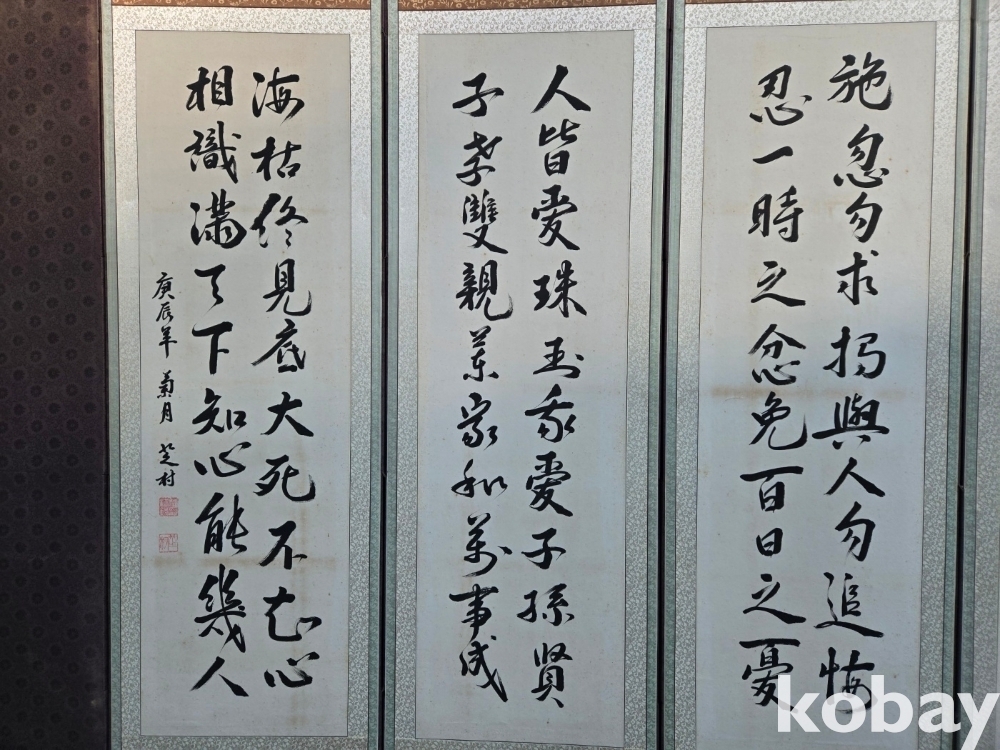 施忽勿求報與人勿追悔
忍一時之忿免百日之憂
人皆愛珠玉我愛子孫賢
子孝雙親樂家和萬事成
海枯終見底大死不知心
相識滿天下知心能幾人
庚辰年 菊月 芝村
kobay